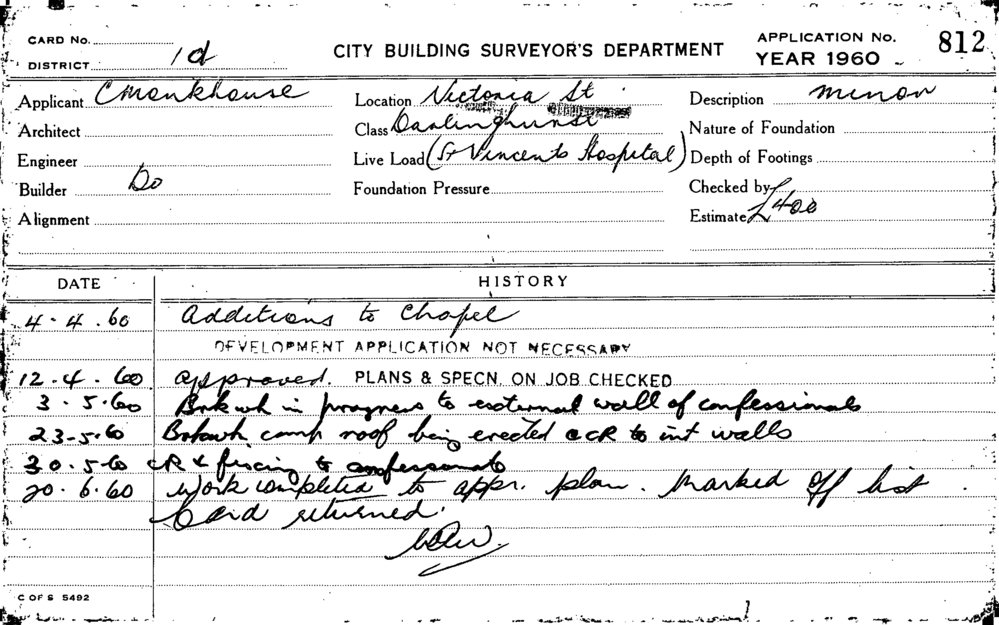 CARD No.
DISTRICT 1d
CITY BUILDING SURVEYOR'S DEPARTMENT
APPLICATION No. 812
YEAR 1960
Applicant C Monkhouse
Location Victoria St
Description minor
Architect
Class Darlinghurst
Nature of Foundation
Engineer
Live Load (St Vincents Hospital)
Depth of Footings
Builder Do
Foundation Pressure
Checked by
Alignment
Estimate £400
DATE HISTORY
4-4.60 additions to Chapel
DEVELOPMENT APPLICATION NOT NECESSARY
12.4.60 approved. PLANS & SPECN. ON JOB CHECKED
3.5.60 Brkwk in progress to external wall of confessionals
23-5.60 Brkwk comp roof being erected CR to int walls
30.5.60 CR & to confessionals
20.6.60 work completed to appr. plan. Marked off list
Card returned.
C OF S 5492